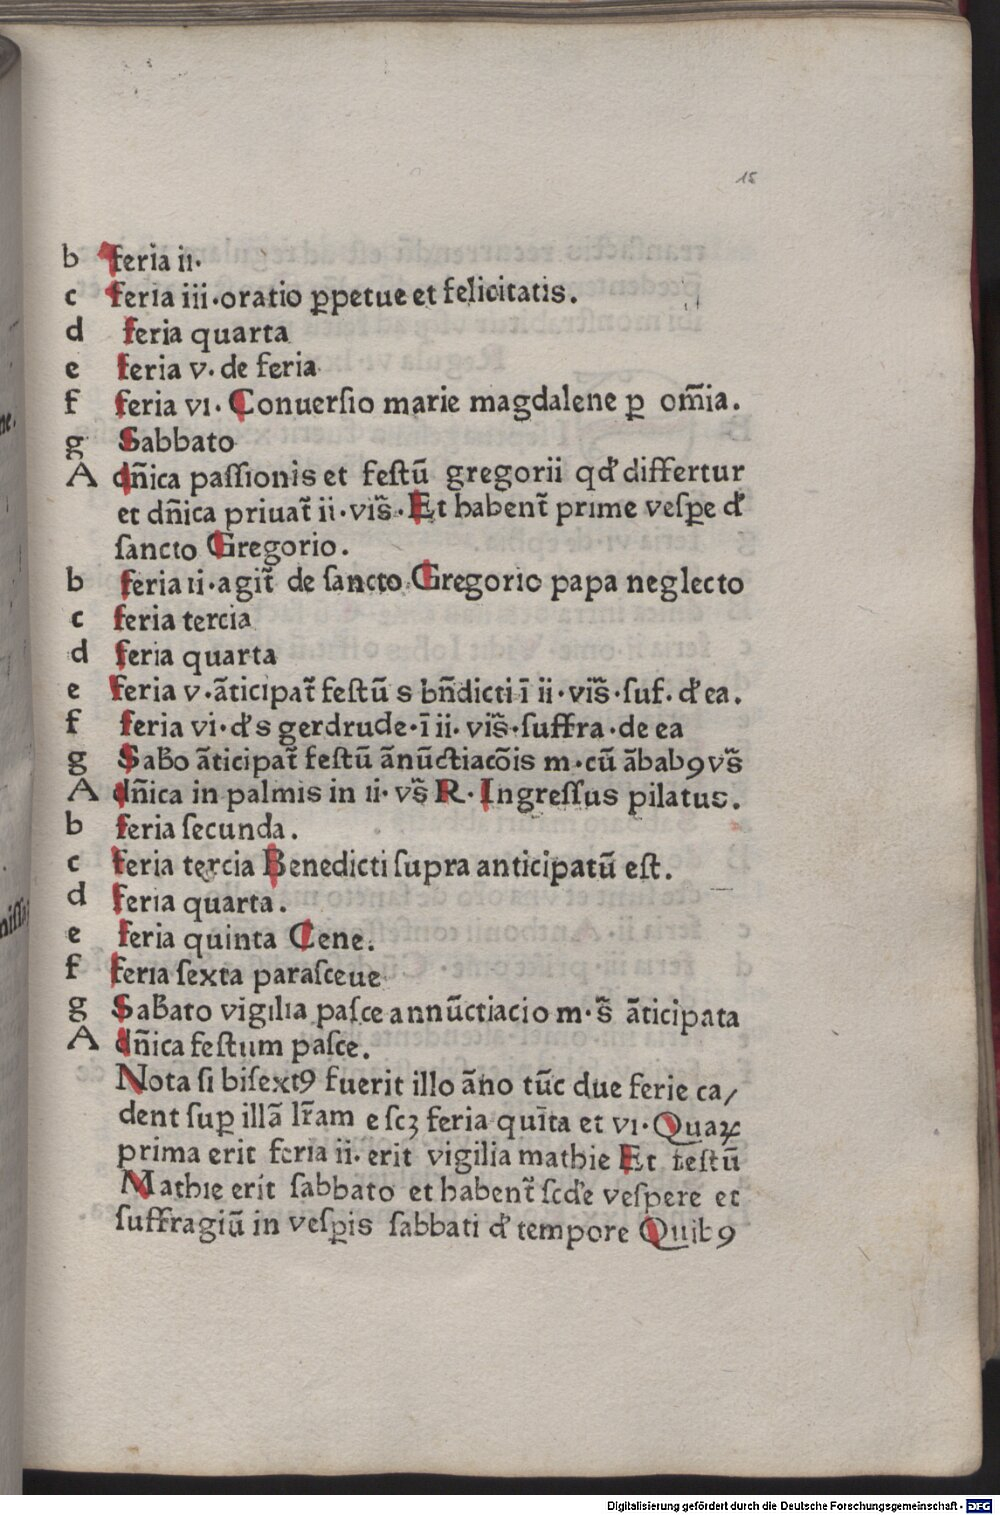 15
b feria ii.
c feria iii·oratio ꝑpetue et felicitatis.
d feria quarta
e feria v· de feria
f feria vi· Conuersio marie magdalene ꝑ om̄ia.
g Sabbato
A dn̄ica passionis et festū gregorii qđ differtur
et dn̄ica priuat̄ ii·vis̄·Et habent̄ prime vesꝑe đ
sancto Gregorio.
b feria ii·agit̄ de sancto Gregorio papa neglecto
c feria tercia
d feria quarta
e feria v·āticipat̄ festū s bn̄dicti ī ii·vis̄·suf. đ ea.
f feria vi·đ s gerdrude·ī ii· vis̄·suffra·de ea
g Sab̄o āticipat̄ festū ānūctiacōis m·cū ābabꝯ vs̄
A dn̄ica in palmis in ii·vs̄ R·Ingressus pilatus.
b feria secunda.
c feria tercia Benedicti supra anticipatū est.
d feria quarta.
e feria quinta Cene.
f feria sexta parasceue
g Sab̄ato vigilia pasce annūctiacio m·s̄ āticipata
A dn̄ica festum pasce.
Nota si bisextꝯ fuerit illo āno tūc due ferie ca/
dent suꝑ illā lr̄am e scꝫ feria quīta et vi·Quaꝝ
prima erit feria ii· erit vigilia mathie Et festū
Mathie erit sabbato et habent̄ scđe vespere et
suffragiū in vesꝑis sabbati đ tempore Quibꝯ
Digitalisierung gefördert durch die Deutsche Forschungsgemeinschaft - DFG